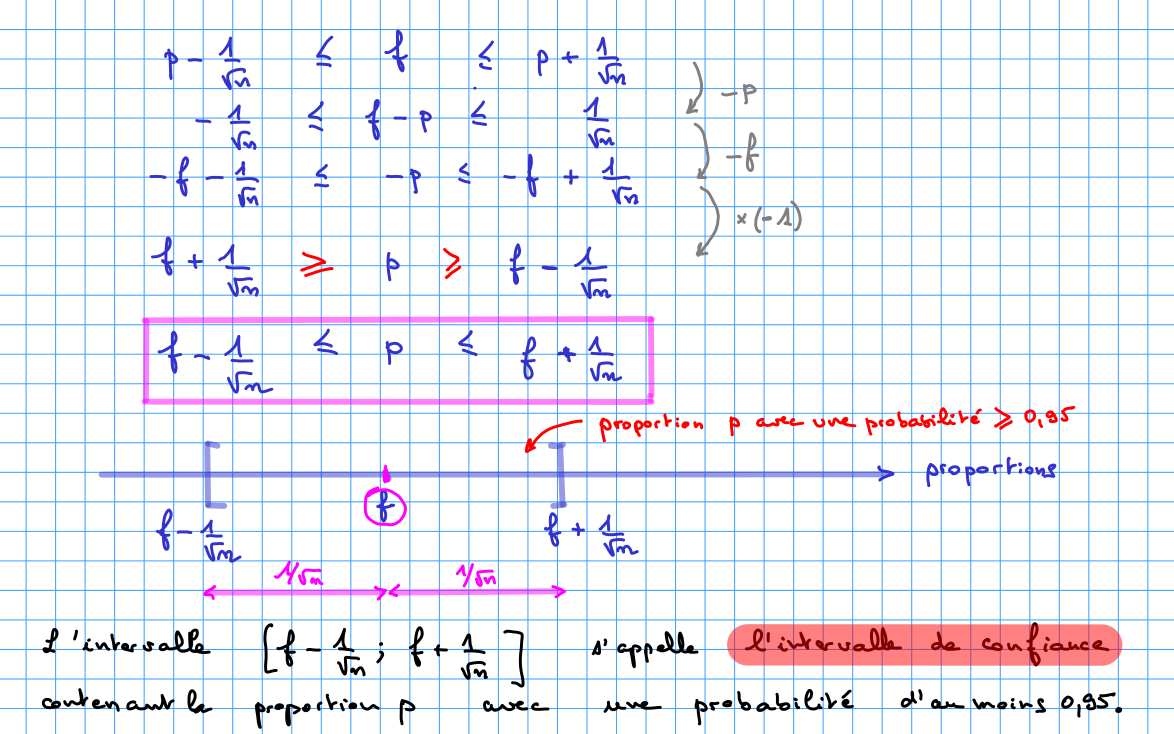 p - 1/√n ≤ f ≤ p + 1/√n
- p
- 1/√n ≤ f - p ≤ 1/√n
- f
- f - 1/√n ≤ - p ≤ - f + 1/√n
× (-1)
f + 1/√n ≥ p ≥ f - 1/√n
f - 1/√n ≤ p ≤ f + 1/√n
proportion p avec une probabilité ≥ 0,95
proportions
f
f - 1/√n f + 1/√n
1/√n 1/√n
L'intervalle [f - 1/√n ; f + 1/√n] s'appelle l'intervalle de confiance
contenant la proportion p avec une probabilité d'au moins 0,95.